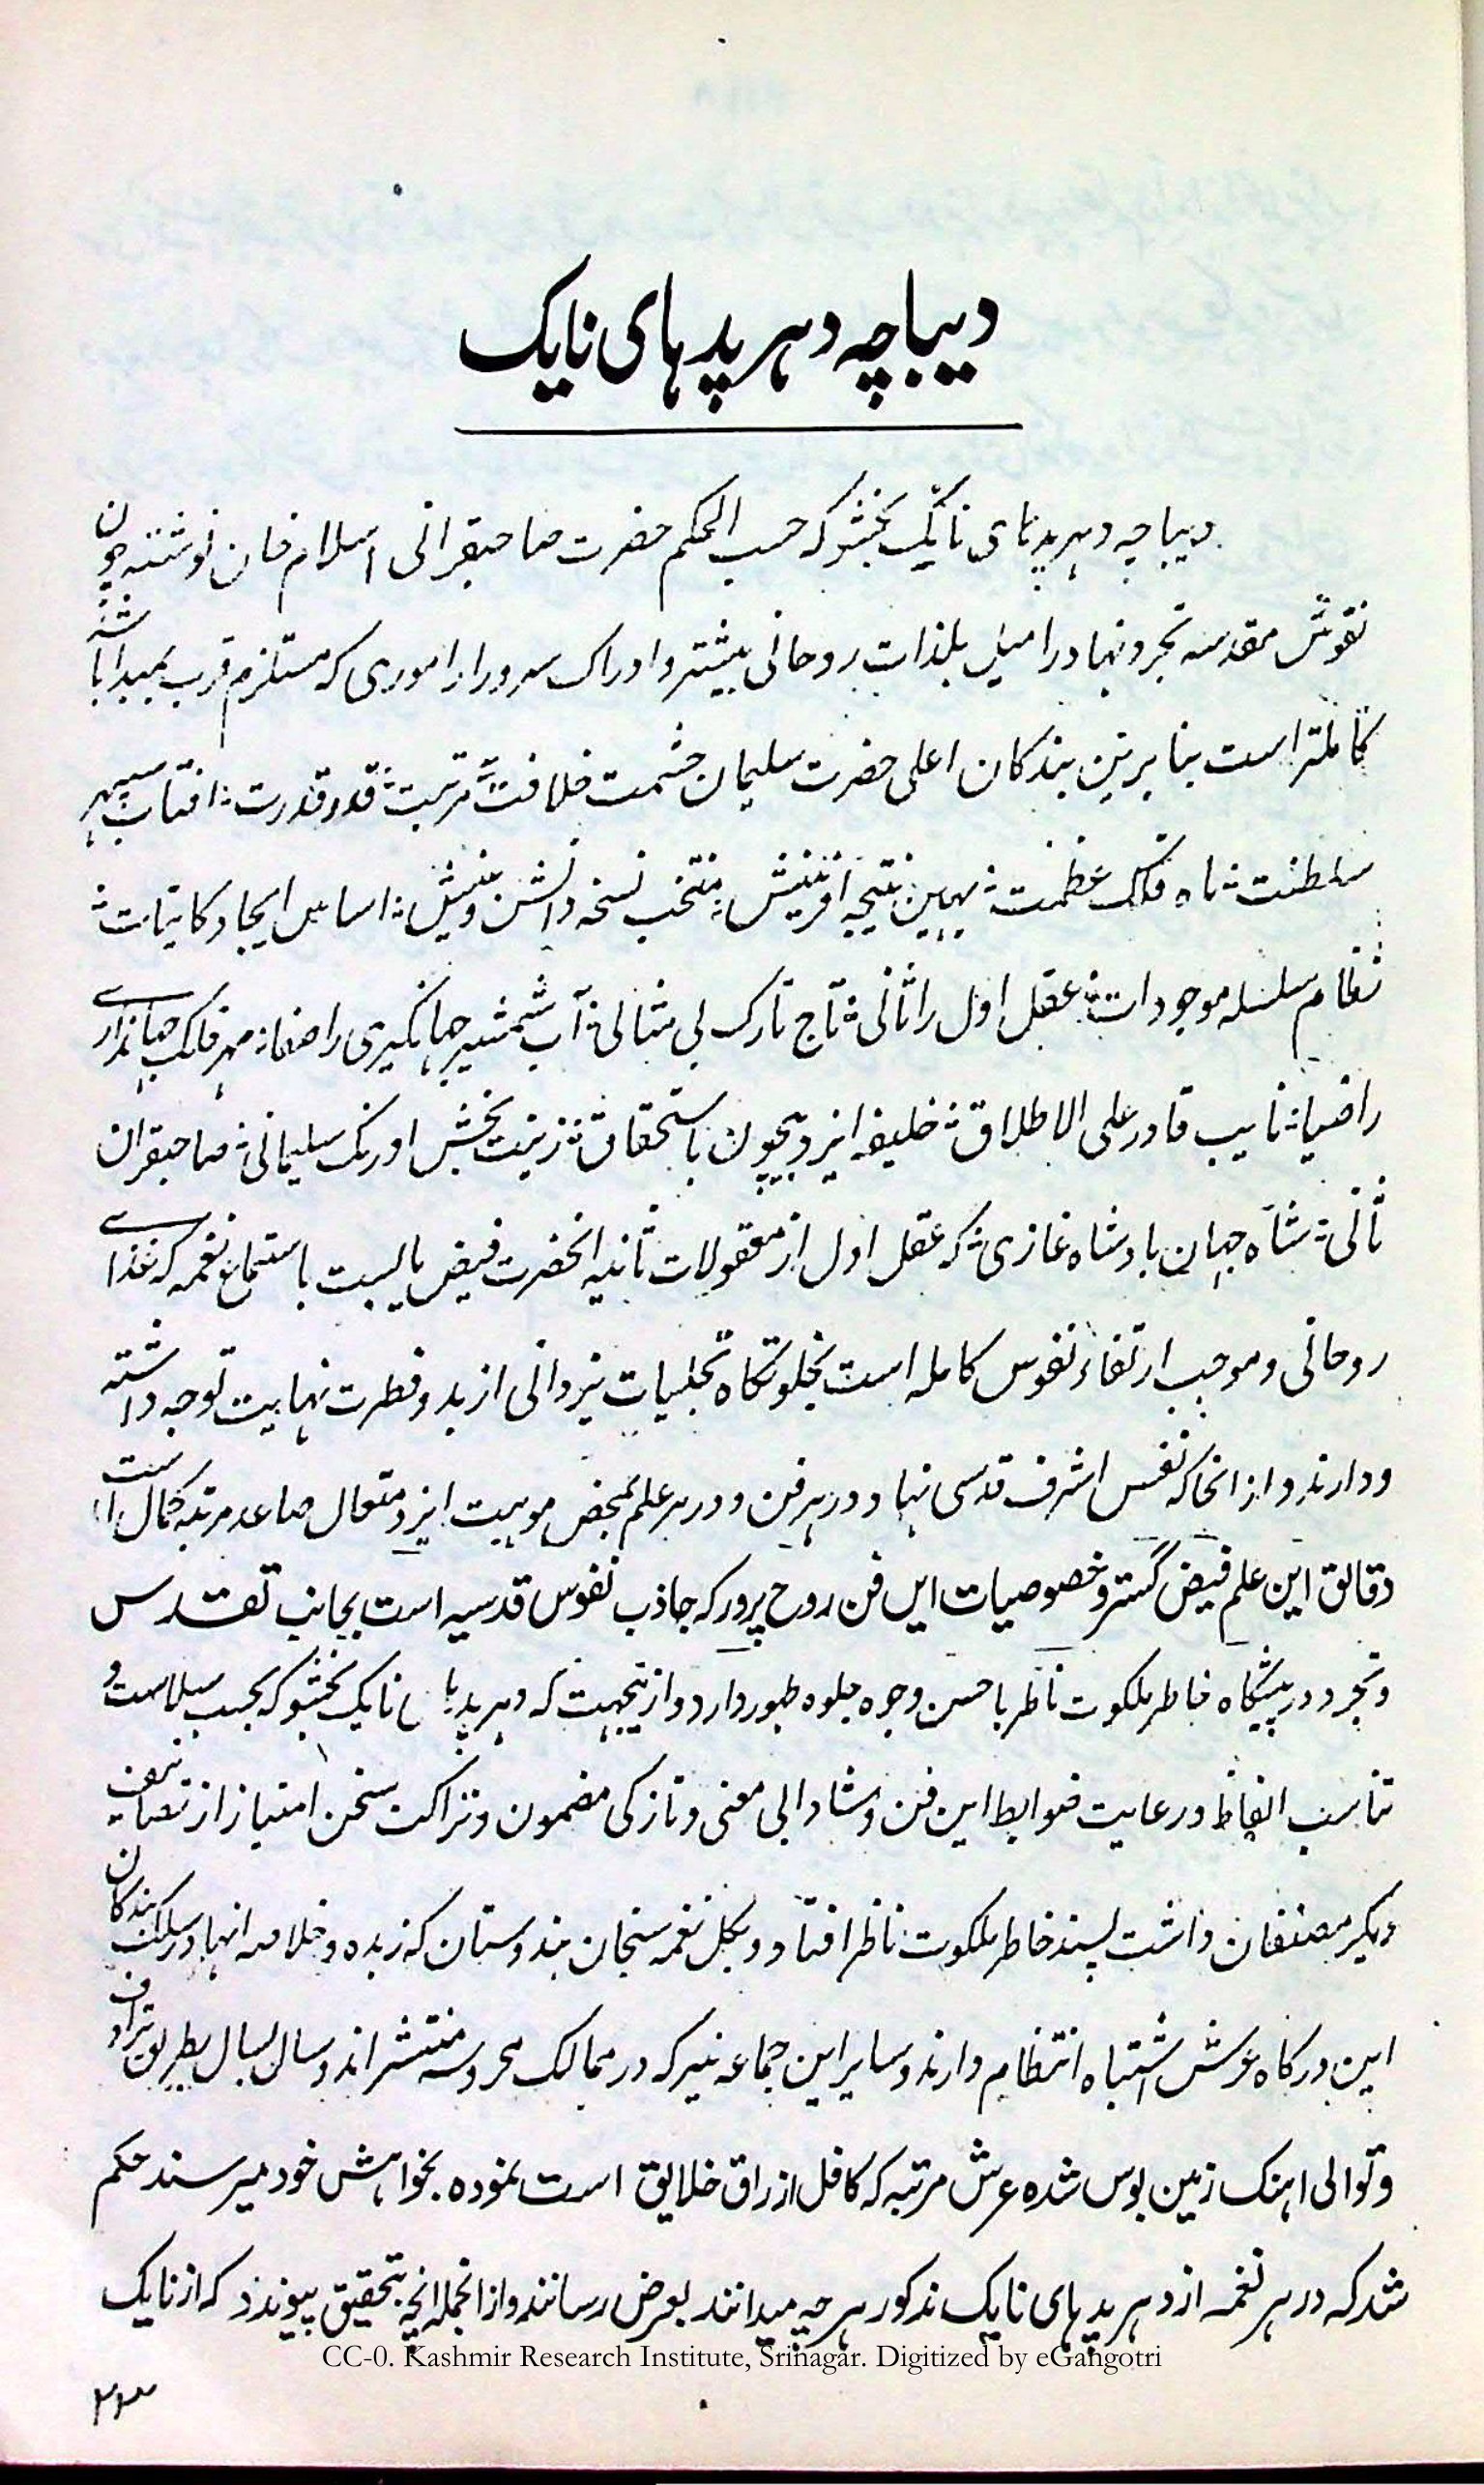 دیباچه دهرپدهای نایک
دیباچه دهرپدهای نایک بخشو که حسب الحکم حضرت صاحبقرانی اسلام خان نوشته چون
نقوش مقدسه تجرد نهاد را میل بلذات روحانی بیشتر و ادراک سرور از اموری که مستلزم قرب بمبدا باشد
کاملتر است بنا برین بندکان اعلی حضرت سلیمان حشمت خلافت مرتبت قدر قدرت افتاب سپهر
سلطنت ماه فلک عظمت بهین نتیجه افرینش منتخب نسخه دانش و بینش اساس ایجاد کاینات
نظام سلسله موجودات عقل اول را ثانی تاج تارک بی مثالی آب شمشیر جهانکیری را صفا مهر فلک جهانداری
را ضیا نایب قادر علی الاطلاق خلیفه ایزد بیچون باستحقاق زینت بخش اورنک سلیمانی صاحبقران
ثانی شاه جهان بادشاه غازی که عقل اول از معقولات ثانیه انحضرت فیض یابست باستماع نغمه که غذای
روحانی و موجب ارتقاء نفوس کامله است بخلوتکاه تجلیات یزدانی از بدو فطرت نهایت توجه داشته
و دارند و از انجا که نفس اشرف قدسی نهاد در هر فن و در هر علم بمحض موهبت ایزد متعال صاعد مرتبه کمال است
دقائق این علم فیض گستر و خصوصیات این فن روح پرور که جاذب نفوس قدسیه است بجانب تقدس
و تجرد در پیشکاه خاطر ملکوت ناظر باحسن وجوه جلوه ظهور دارد و از ینجهت که دهرپدهای نایک بخشو که بحسب سلاست و
تناسب الفاظ و رعایت ضوابط این فن و شادابی معنی و تازکی مضمون و نزاکت سخن امتیاز از تصانیف
دیکر مصنفان داشت پسند خاطر ملکوت ناظر افتاد و بکل نغمه سنجان هندوستان که زبده و خلاصه انها در سلک بندکان
این درکاه عرش اشتباه انتظام دارند و سایر این جماعه نیز که در ممالک محروسه منتشر اند و سال بسال بطریق ترادف
و توالی اهنک زمین بوس شده عرش مرتبه که کافل ارزاق خلایق است نموده بخواهش خود میرسند حکم
شد که در هر نغمه از دهرپدهای نایک مذکور هر چه میدانند بعرض رسانند و از انجمله انچه بتحقیق پیوندد که از نایک
CC-0. Kashmir Research Institute, Srinagar. Digitized by eGangotri